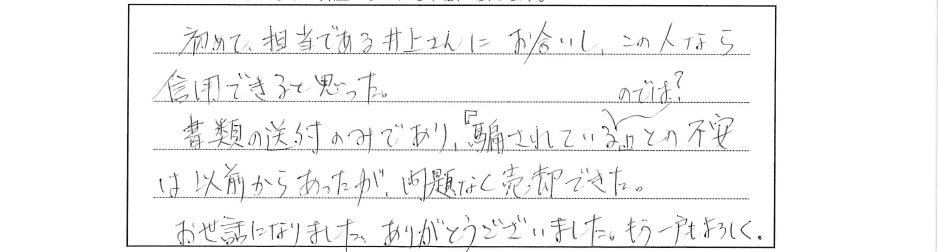 初めて、担当である井上さんにお会いし、この人なら
信用できると思った。
書類の送付のみであり、『騙されているのでは?』との不安
は以前からあったが、問題なく売却できた。
お世話になりました、ありがとうございました。もう一戸もよろしく。